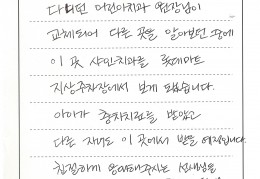 다니던 어린이치과 원장님이
교체되어 다른 곳을 알아보던 중에
이곳 샤인치과를 롯데마트
지상주차장에서 보게 되었습니다.
아이가 충치치료를 받았고
다른 자녀도 이곳에서 받을 예정입니다.
친절하게 응대해주시는 선생님들